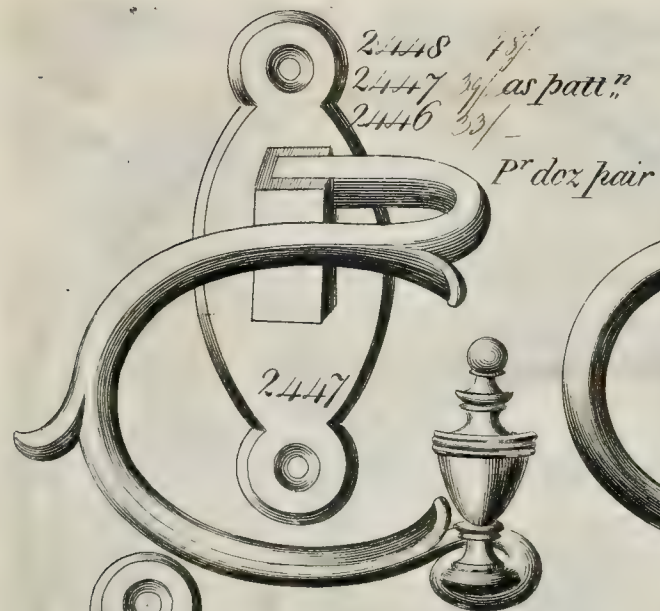 2448
2447 39/ as patt.ⁿ
2446 33/-
Pʳ doz pair
2447